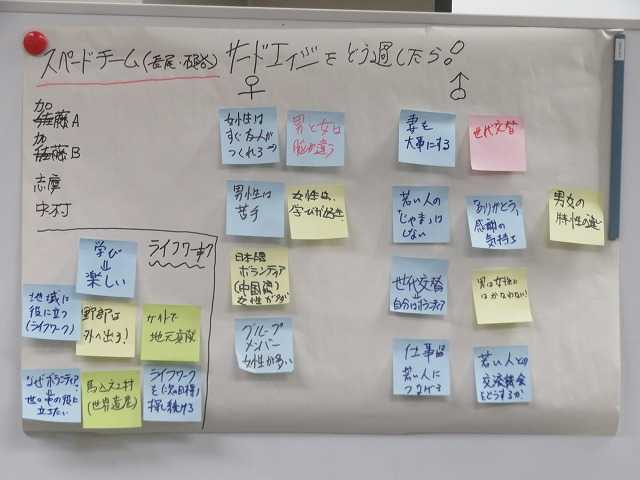 スペードチーム(長尾・
サードエイジをどう過したら?
♀
♂
加藤A
加藤B
志度
中村
女性は
すぐ友人が
つくれる
男と女は
脳が違う
男性は
苦手
女性は、
学びが好き
日本語
ボランティア
(中国語)
女性が多い
グループ
メンバー
女性が多い
妻を
大事にする
世代交替
若い人の
「じゃま」は
しない
「ありがとう」
感謝の
気持ち
男女の
特性の違い
世代交替
自分はボランティア
男は女性に
はかなわない!
仕事は
若い人に
つなげる
若い人との
交流機会
をどうするか?
学び
⇓
楽しい
ライフワーク
地域に
役に立つ
(ライフワーク)
野郎は
外へ出ろ!
ガイドで
地元貢献
なぜボランティア
世の中の役に
立ちたい
馬込
(世界遺産)
ライフワーク
を(次の目標)
探し続ける